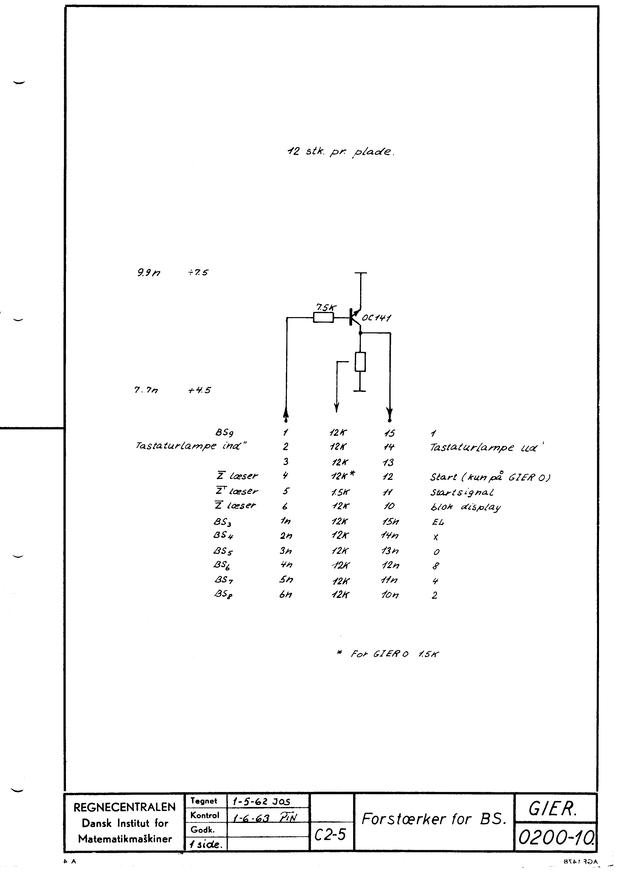 12 stk. pr. plade.
9.9n ÷7.5
7.5K
OC141
7.7n ÷4.5
BS9 1 12K 15 1
Tastaturlampe ind" 2 12K 14 Tastaturlampe ud'
3 12K 13
Z læser 4 12K* 12 Start (kun på GIER 0)
Z' læser 5 1.5K 11 Startsignal
Z læser 6 12K 10 blok display
BS3 1n 12K 15n EL
BS4 2n 12K 14n X
BS5 3n 12K 13n 0
BS6 4n 12K 12n 8
BS7 5n 12K 11n 4
BS8 6n 12K 10n 2
* For GIER 0 1.5K
REGNECENTRALEN
Dansk Institut for
Matematikmaskiner
Tegnet 1-5-62 JOS
Kontrol 1-6-63
Godk.
1 side.
C2-5
Forstærker for BS.
GIER.
0200-10
A 4
AGF 1478